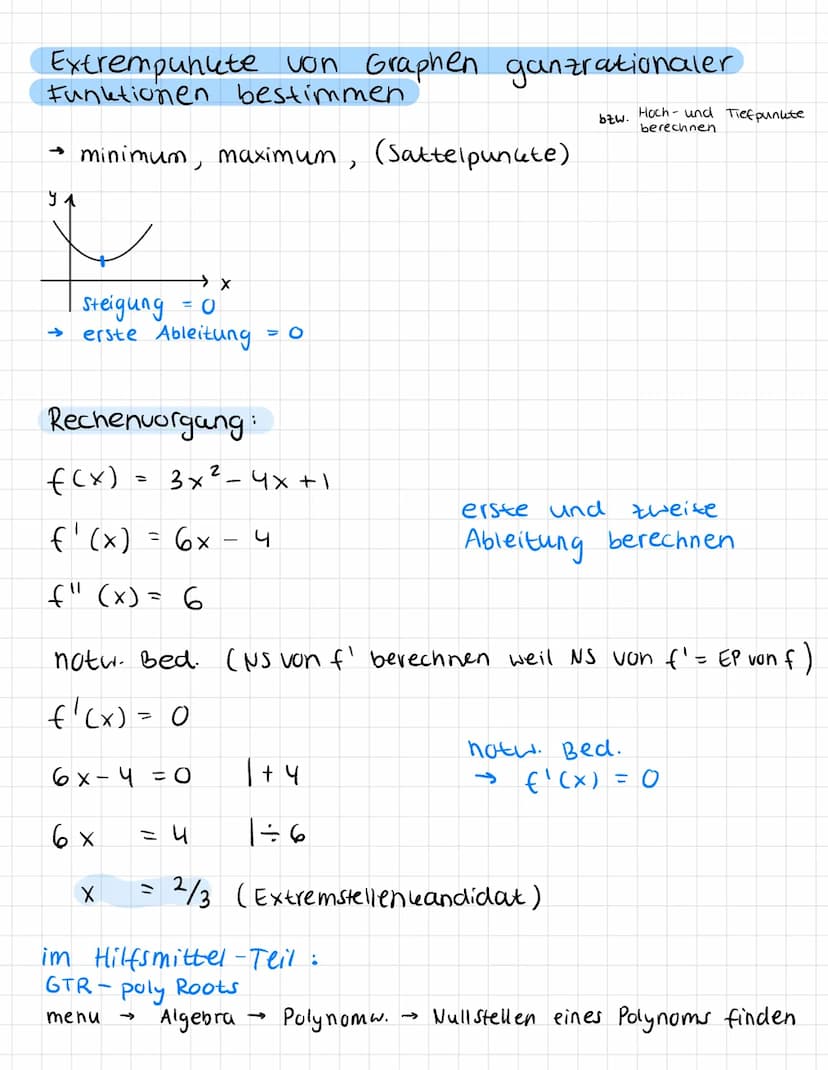 Extrempunkte von Graphen ganzrationaler
Funktionen bestimmen
bzw. Hoch- und Tiefpunkte
berechnen
→ minimum, maximum, (Sattelpunkte)
y
x
Steigung = 0
→ erste Ableitung = 0
Rechenvorgang:
f(x) = 3x² - 4x + 1
erste und zweite
f'(x) = 6x - 4
Ableitung berechnen
f''(x) = 6
notw. Bed. (NS von f' berechnen weil NS von f' = EP von f)
f'(x) = 0
notw. Bed.
6x - 4 = 0 |+ 4
→ f'(x) = 0
6x = 4 |÷ 6
x = 2/3 (Extremstellenkandidat)
im Hilfsmittel-Teil:
GTR - poly Roots
menu → Algebra → Polynomw. → Nullstellen eines Polynoms finden